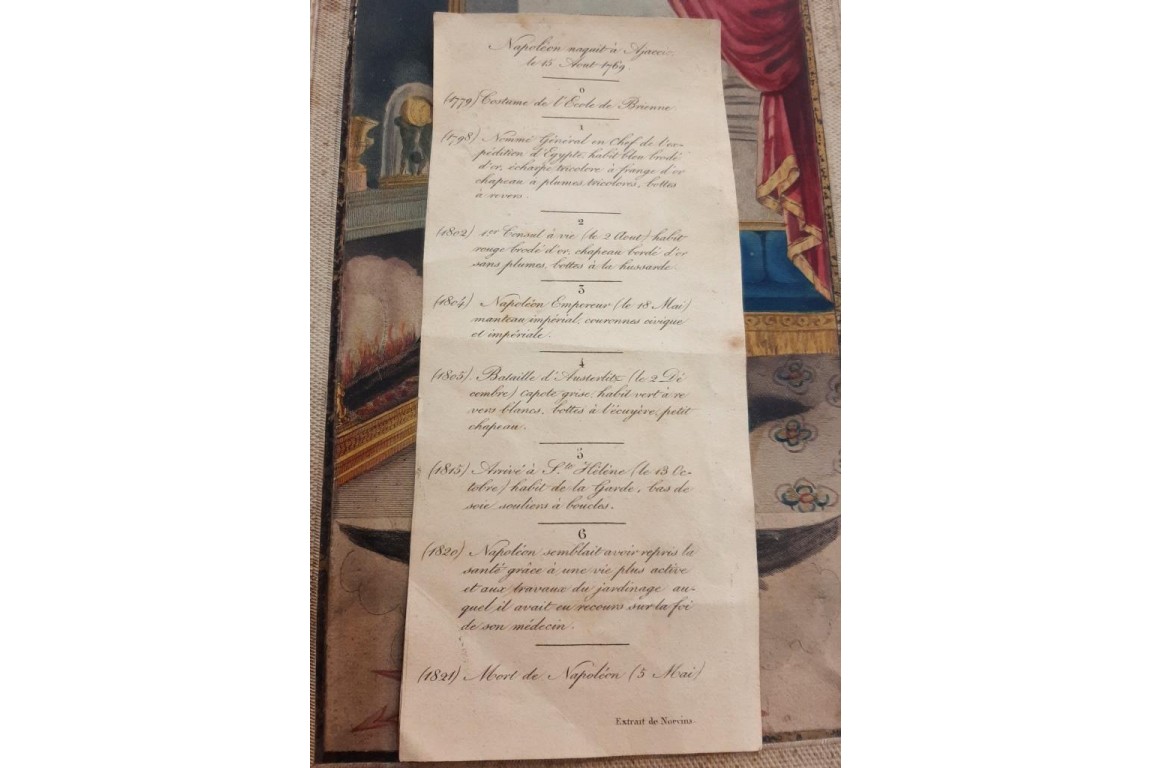 Napoléon naquit à Ajaccio
le 15 Aout 1769.
0
(1779) Costume de l'Ecole de Brienne
1
(1798) Nommé Général en Chef de l'ex-
pédition d'Egypte, habit bleu brodé
d'or, écharpe tricolore à frange d'or
chapeau a plumes tricolores, bottes
à revers.
2
(1802) 1er Consul à vie (le 2 Aout) habit
rouge brodé d'or, chapeau bordé d'or
sans plumes, bottes à la hussarde.
3
(1804) Napoléon Empereur (le 18 Mai)
manteau impérial, couronnes civique
et impériale.
4
(1805) Bataille d'Austerlitz (le 2 Dé
cembre) capote grise, habit vert à re
vers blancs, bottes à l'écuyère, petit
chapeau.
5
(1815) Arrivé à Ste Hélène (le 13 Oc-
tobre) habit de la Garde, bas de
soie souliers à boucles.
6
(1820) Napoléon semblait avoir repris la
santé grâce à une vie plus active
et aux travaux du jardinage au-
quel il avait eu recours sur la foi
de son médecin.
(1821) Mort de Napoléon (5 Mai)
Extrait de Norvins.